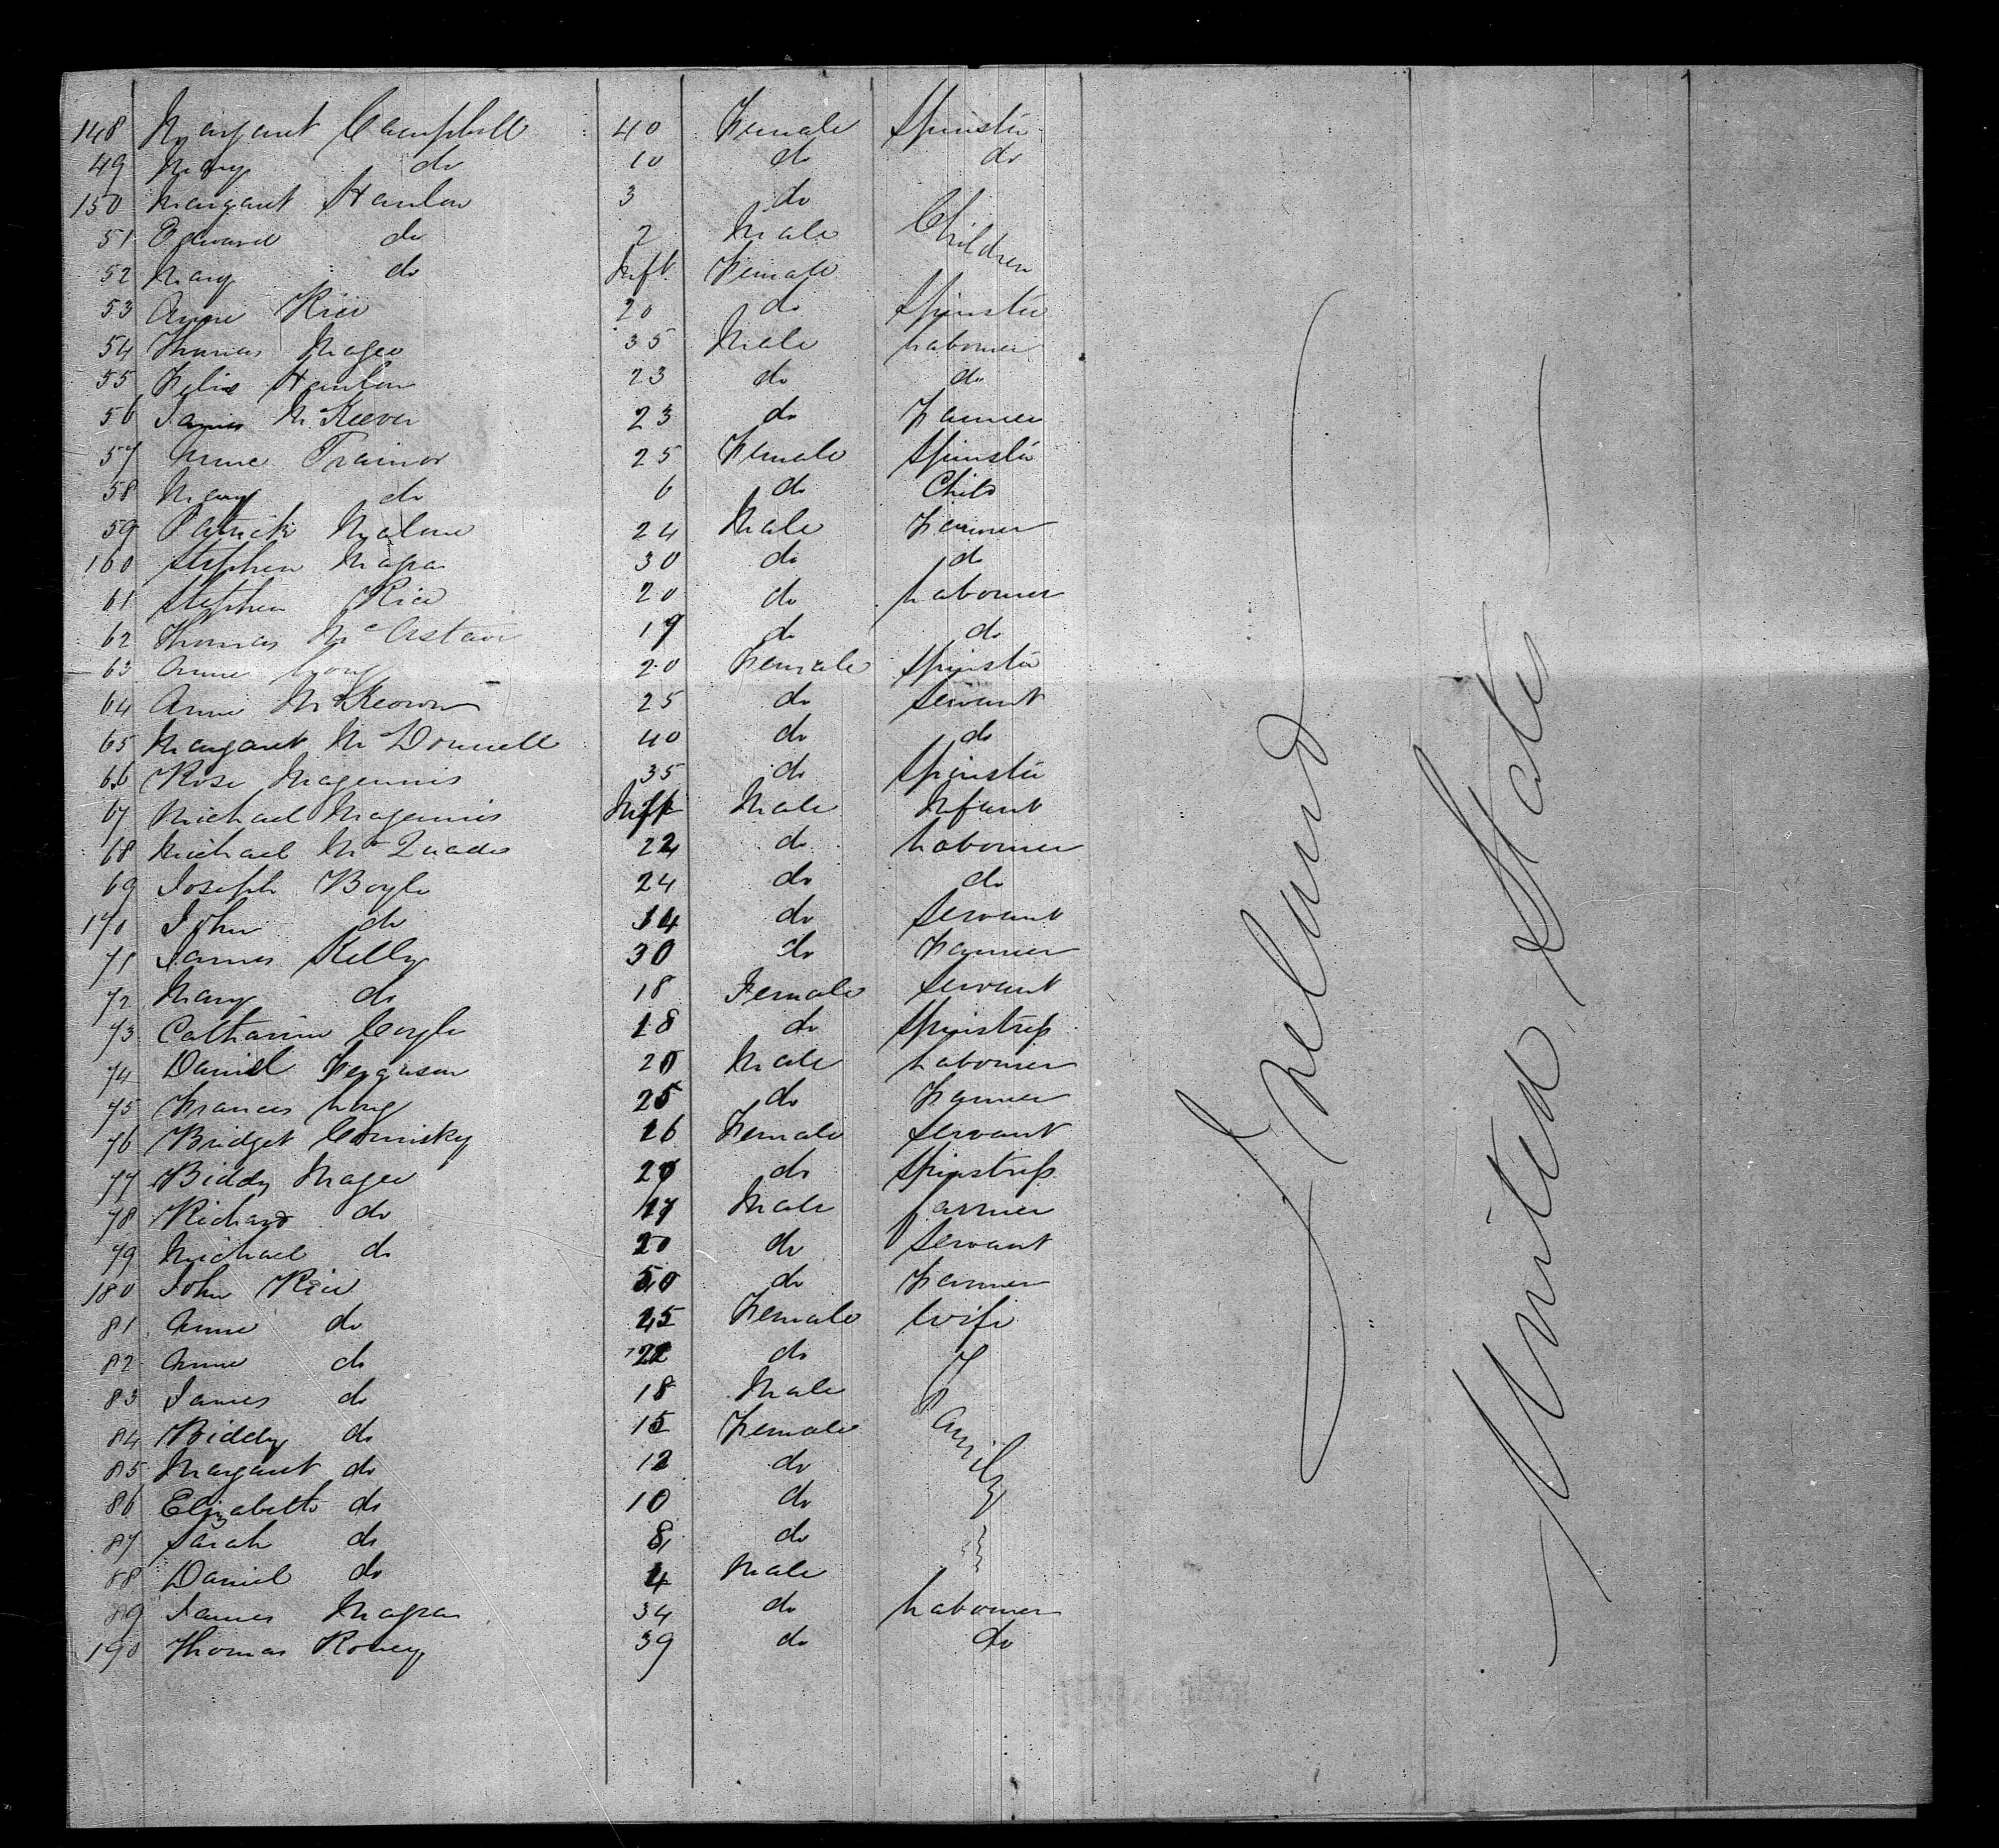 148 Margaret Campbell 40 Female Spinster
49 Mary do 10 do do
150 Margaret Hanlon 3 do
51 Edward do 2 Male Children
52 Mary do Inft Female
53 Anne Rice 20 do Spinster
54 Thomas Magee 35 Male Labourer
55 Felix Hanlon 23 do do
56 James McKeever 23 do Farmer
57 Anne Trainor 25 Female Spinster
58 Mary do 6 do Child
59 Patrick Malone 24 Male Farmer
160 Stephen Magra 30 do do
61 Stephen Rice 20 do Labourer
62 Thomas Mc 19 do do
63 Anne Long 20 Female Spinster
64 Anne McKeown 25 do Servant
65 Margaret McDonnell 40 do do
66 Rose Magennis 35 do Spinster
67 Michael Magennis Inft Male Infant
68 Michael McQuade 22 do Labourer
69 Joseph Boyle 24 do do
170 John do 14 do Servant
71 James Kelly 30 do Farmer
72 Mary do 18 Female Servant
73 Catharine Coyle 18 do Spinstress
74 Daniel Ferguson 20 Male Labourer
75 Frances Long 25 do Farmer
76 Bridget Cominsky 16 Female Servant
77 Biddy Magee 20 do Spinstress
78 Richard do 17 Male farmer
79 Michael do 20 do Servant
180 John Rice 50 do Farmer
81 Anne do 45 Female Wife
82 Anne do 22 do
83 James do 18 Male
84 Biddy do 15 Female Family
85 Margaret do 12 do
86 Elizabeth do 10 do
87 Sarah do 8 do
88 Daniel do 4 Male
89 James Magra 34 do Labourer
190 Thomas Roney 39 do do
Ireland
United States